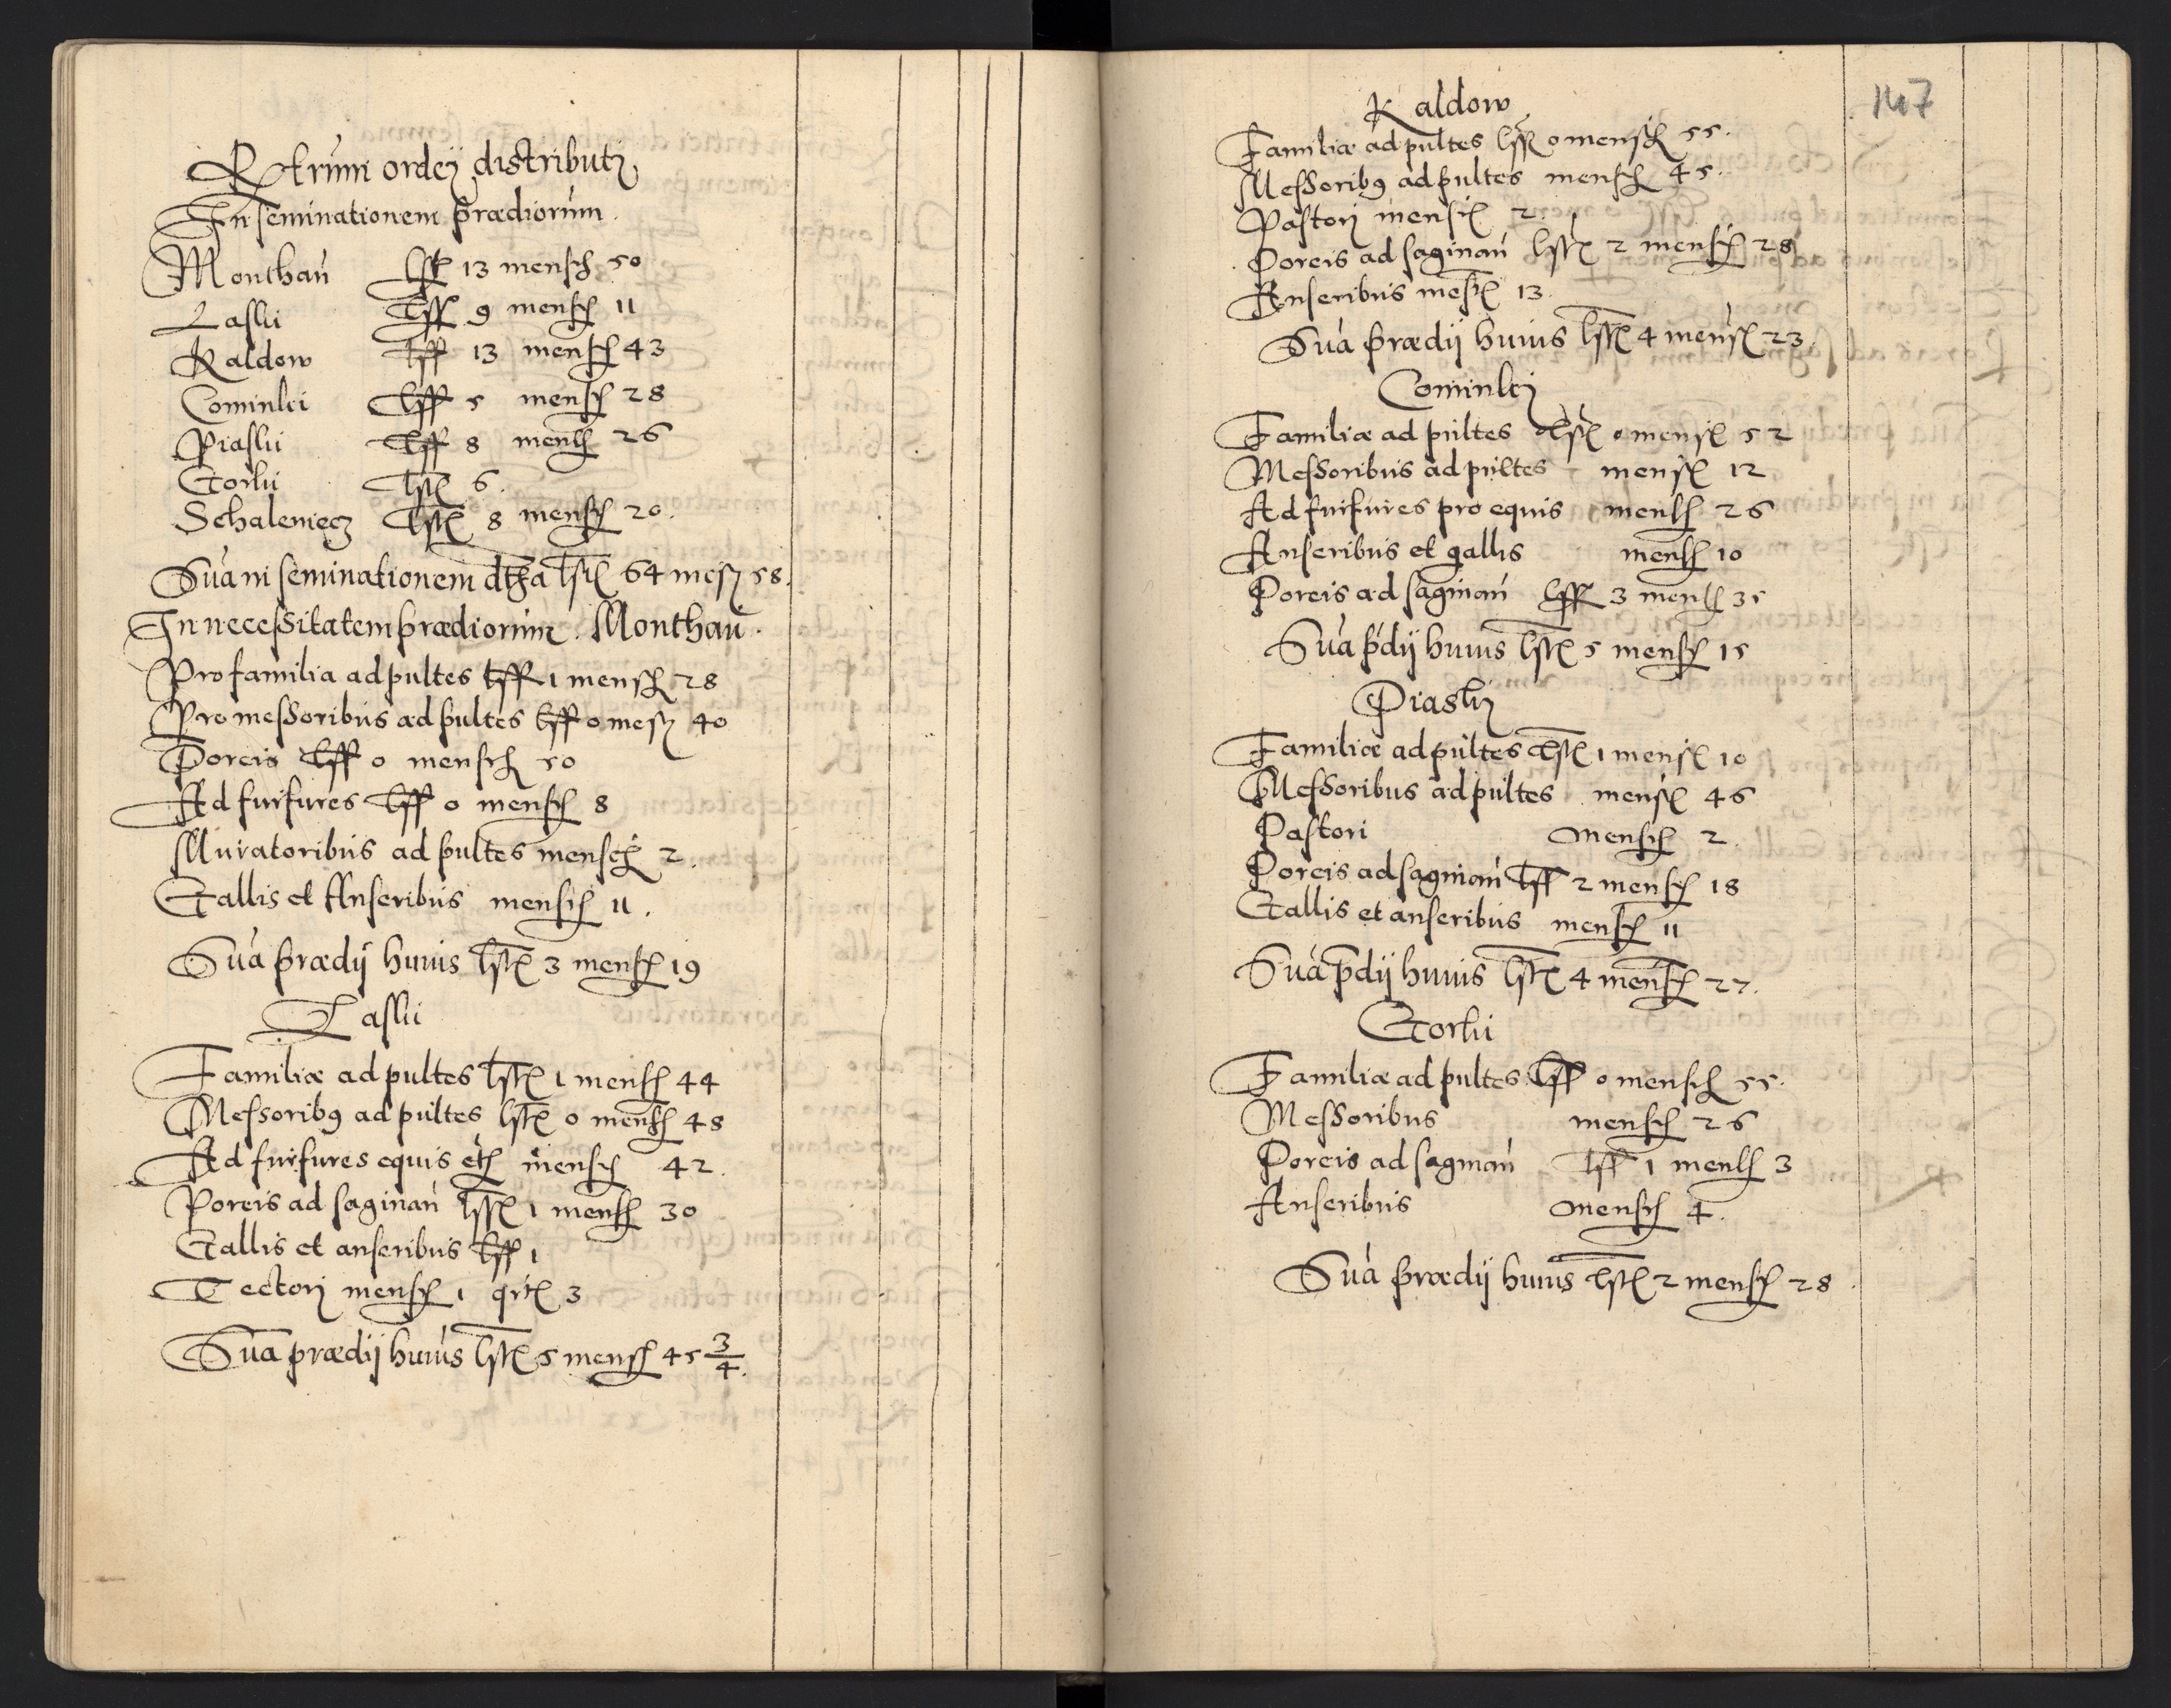 Rtrum ordej distributj
In seminationem prædiorum.
Monthau lst 13 mensch 50
Lasski lst 9 mensch 11
Kaldow lst 13 mensch 43
Cominki lst 5 mensch 28
Piaski lst 8 mensch 26
Gorki lst 6.
Schaleniecz lst 8 mensch 20.
Sua in seminationem dtha lst 64 mesz 58.
In necessitatem prædiorum. Monthau.
Pro familia ad pultes lst 1 mensch 28
Pro messoribus ad pultes lst 0 mesz 40
Porcis lst 0 mensch 50
Ad furfures lst 0 mensch 8
Muratoribus ad pultes mensch 2.
Gallis et Anseribus mensch 11.
Sua prædij huius lst 3 mensch 19
Lasski
Familiæ ad pultes lst 1 mensch 44
Messorib9 ad pultes lst 0 mensch 48
Ad furfures equis etc mensch 42.
Porcis ad saginan lst 1 mensch 30
Gallis et anseribus lst 1
Tectorj mensch 1 qrt 3
Sua prædij huius lst 5 mensch 45 3/4.
147
Kaldow
Familiæ ad pultes lst 0 mensch 55.
Messorib9 ad pultes mensch 45.
Pastorj mensch 2.
Porcis ad saginan lst 2 mensch 28
Anseribus mesch 13.
Sua prædij huius lst 4 mensch 23.
Cominkj
Familiæ ad pultes lst 0 mensch 52
Messoribus ad pultes mensch 12
Ad furfures pro equis mensch 26
Anseribus et gallis mensch 10
Porcis ad saginan lst 3 mensch 35
Sua pdij huius lst 5 mensch 15
Piaskj
Familiæ ad pultes lst 1 mensch 10
Messoribus ad pultes mensch 46
Pastori mensch 2.
Porcis ad saginan lst 2 mensch 18
Gallis et anseribus mensch 11
Sua pdij huius lst 4 mensch 27.
Gorki
Familiæ ad pultes lst 0 mensch 55.
Messoribus mensch 26
Porcis ad saginan lst 1 mensch 3
Anseribus mensch 4.
Sua prædij huius lst 2 mensch 28.